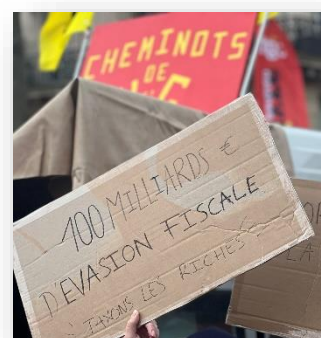 CHEMINOTS
DE
100 MILLIARDS €
D'EVASION FISCALE
TAXONS LES RICHES
LA